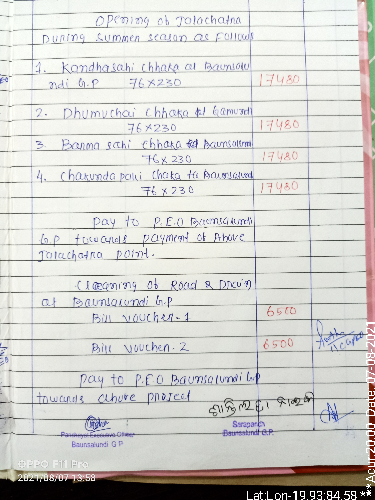 Opening of Jalachatra
During summer season as follows
1. Kandhasahi chhaka at Baunsalu
ndi G.P 76x230 17480
2. Dhumuchai Chhaka at
76x230 17480
3. Barma sahi chhaka
76x230 17480
4. chaka to
76x230 17480
pay to P.E.O Baunsalundi
G.P towards payment of Above
Jalachatra point.
Cleaning of Road & Drain
at Baunsalundi G.P
Bill voucher-1 6500
Bill voucher-2 6500
pay to P.E.O Baunsalundi G.P
towards above project
Panchayat Executive Officer
Baunsalundi G.P.
Sarapanch
Baunsalundi G.P.
OPPO F11 Pro
2021/08/07 13:58
Lat:Lon-19.93:84.58